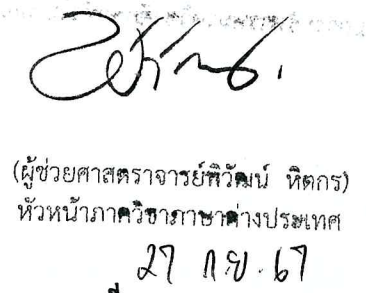 (ผู้ช่วยศาสตราจารย์พิวัฒน์ หิตกร)
หัวหน้าภาควิชาภาษาต่างประเทศ
27 ก.ย. 67